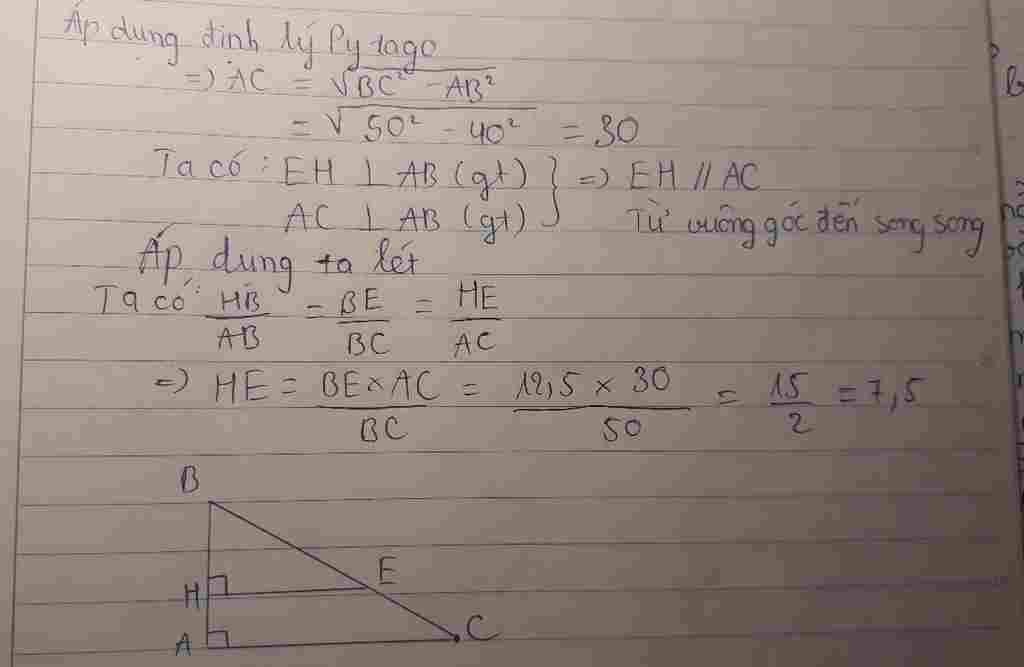 Áp dụng định lý Pytago
=> AC = √BC² - AB²
= √50² - 40² = 30
Ta có : EH ⊥ AB (gt) } => EH // AC
AC ⊥ AB (gt) Từ vuông góc đến song song
Áp dung ta lét
Ta có: HB/AB = BE/BC = HE/AC
=> HE = BE×AC/BC = 12,5 × 30/50 = 15/2 = 7,5
B
H E
A C